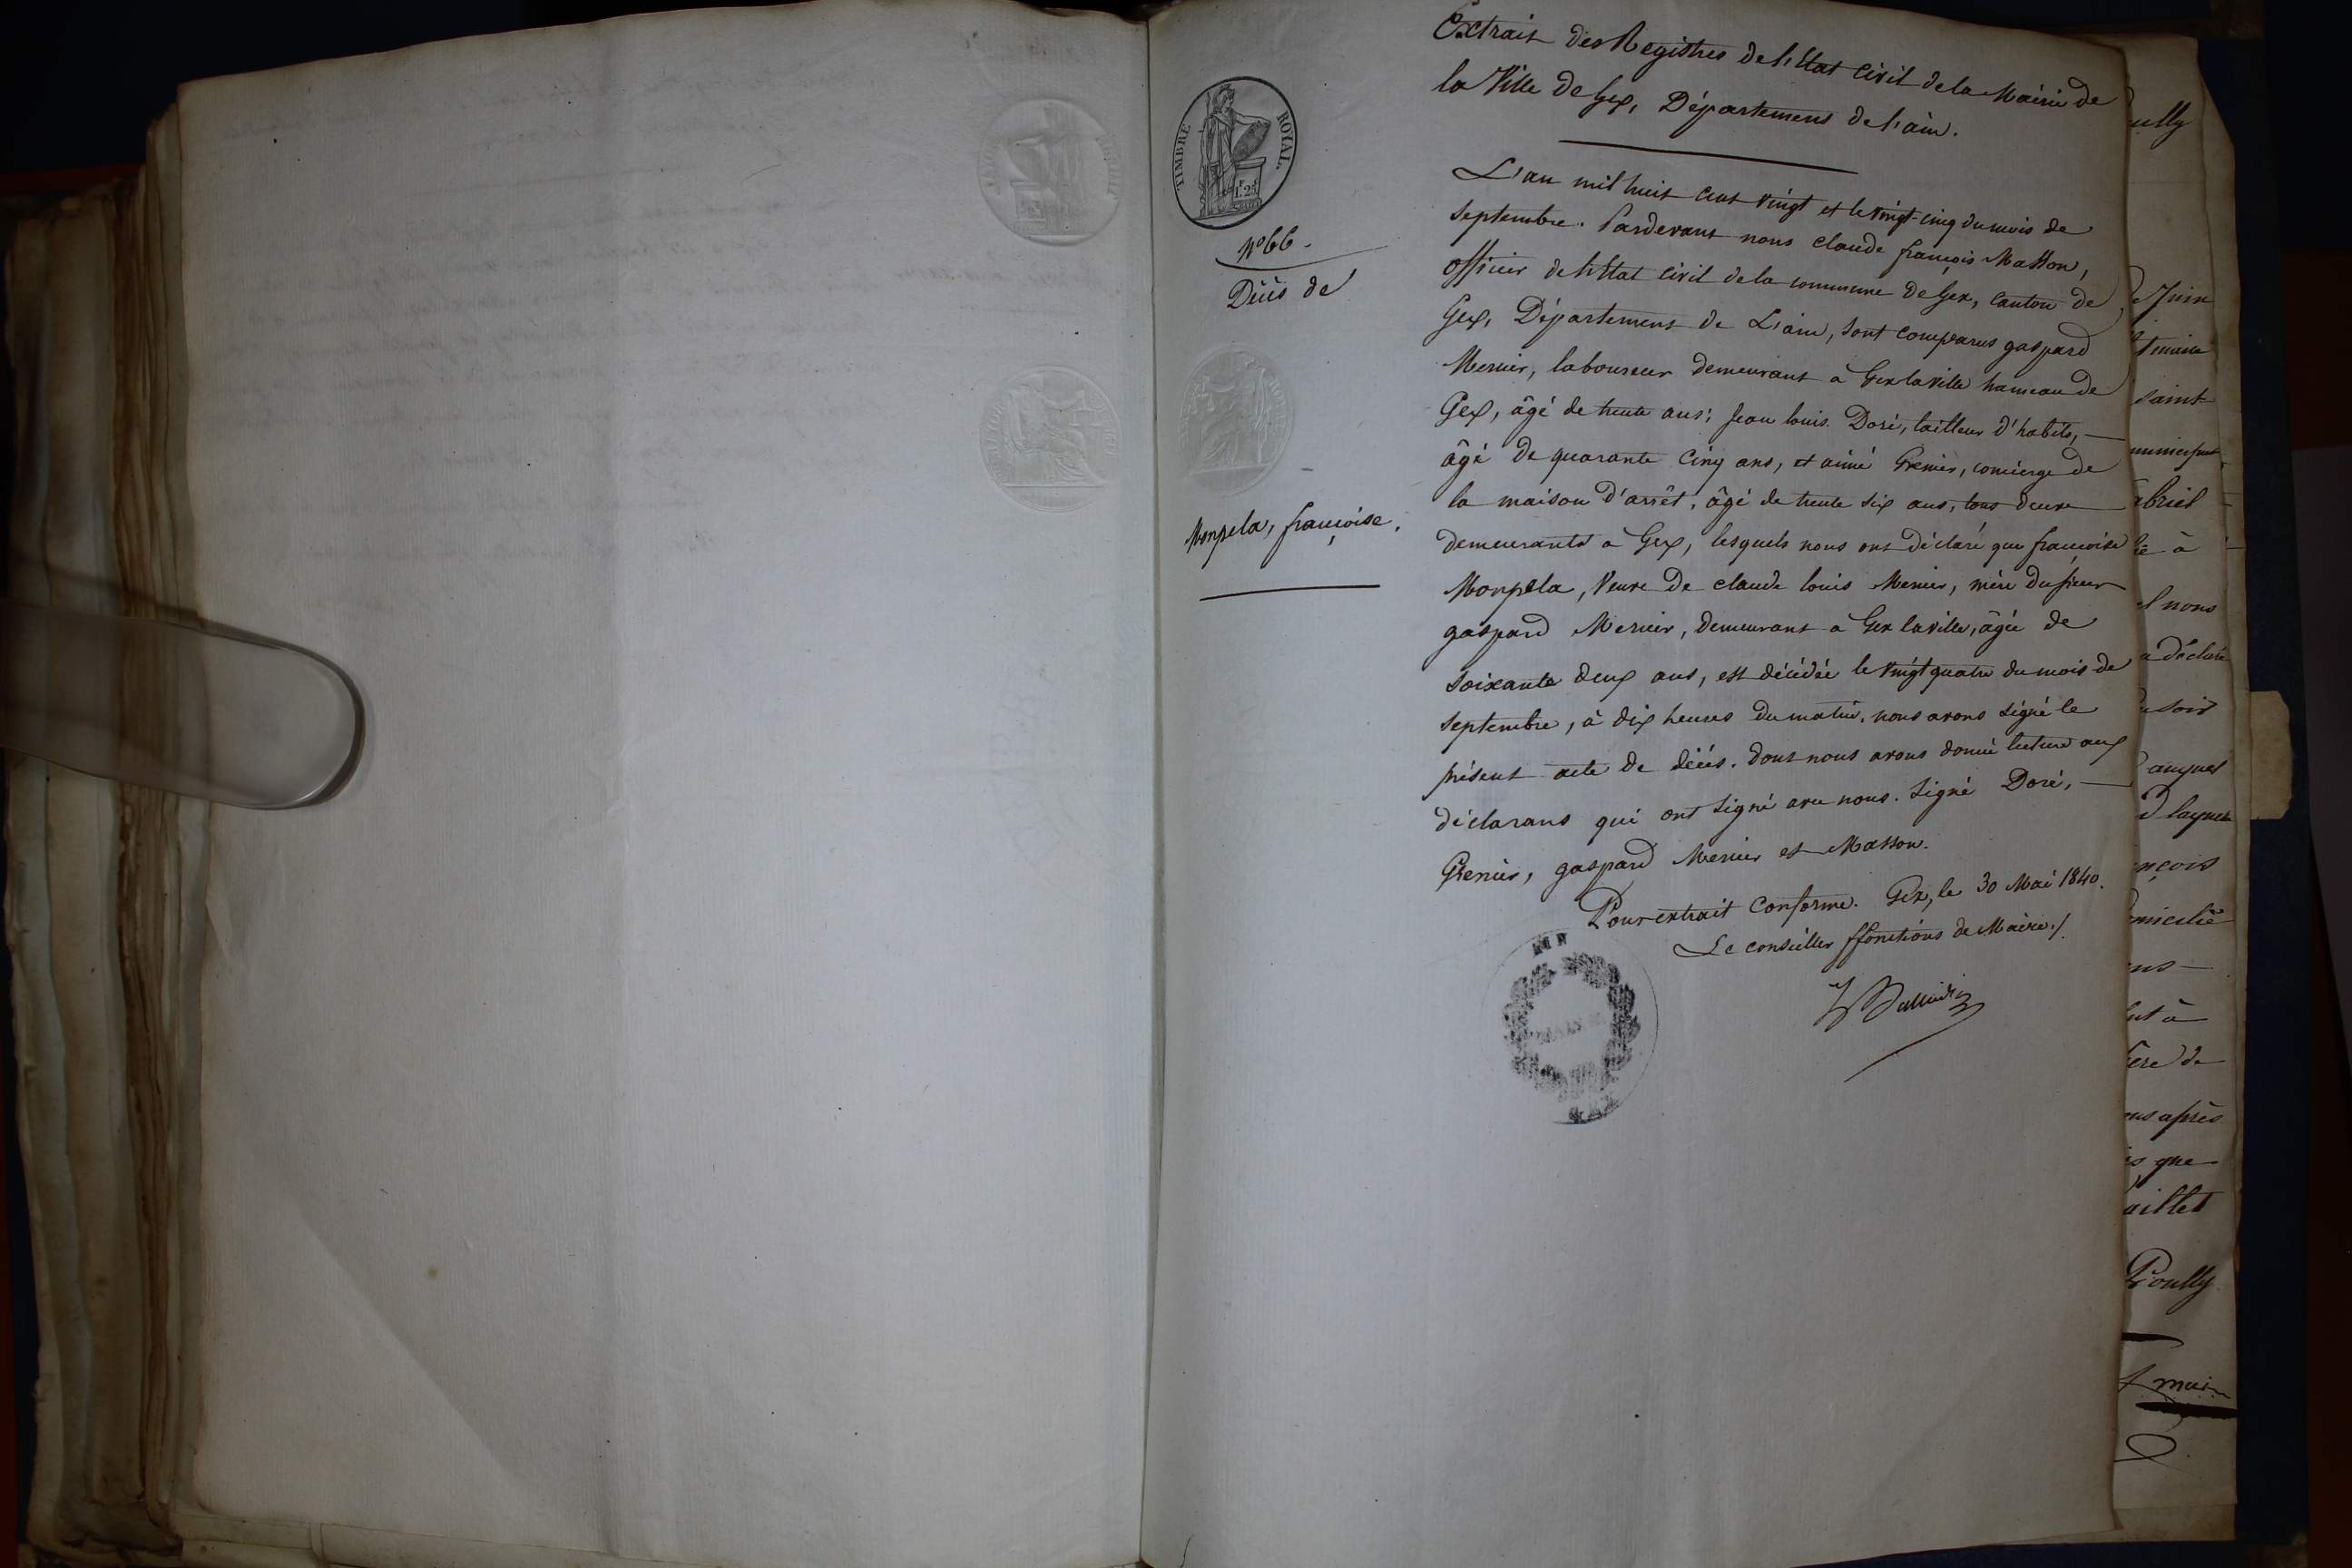 TIMBRE ROYAL
1.25
N° 66.
Décès de
Monpela, françoise.
Extrait des Registres de l'état civil de la Mairie de
la Ville de Gex, Département de l'ain.
L'an mil huit cent vingt et le vingt-cinq du mois de
septembre. Pardevant nous claude françois Masson,
officier de l'état civil de la commune de Gex, canton de
Gex, Département de L'ain, sont comparus gaspard
Mercier, laboureur demeurant à Gex la ville hameau de
Gex, âgé de trente ans; jean louis Doré, tailleur d'habits,
âgé de quarante cinq ans, et aimé Grenier, concierge de
la maison d'arrêt, âgé de trente six ans, tous deux
demeurants à Gex, lesquels nous ont déclaré que françoise
Monpela, Veuve de claude louis Mercier, mère du sieur
gaspard Mercier, demeurant à Gex la ville, âgée de
soixante deux ans, est décédée le vingt quatre du mois de
septembre, à dix heures du matin. nous avons signé le
présent acte de décès. dont nous avons donné lecture aux
déclarans qui ont signé avec nous. Signé Doré,
Grenier, gaspard Mercier et Masson.
Pour extrait conforme. Gex, le 30 Mai 1840.
Le conseiller ffonctions de Maire./.
AIN
GEX
ully
Juin
saint
abriel
à
nous
déclaré
soir
auquel
nçois
omicilié
ère de
après
que
aillet
Pouilly